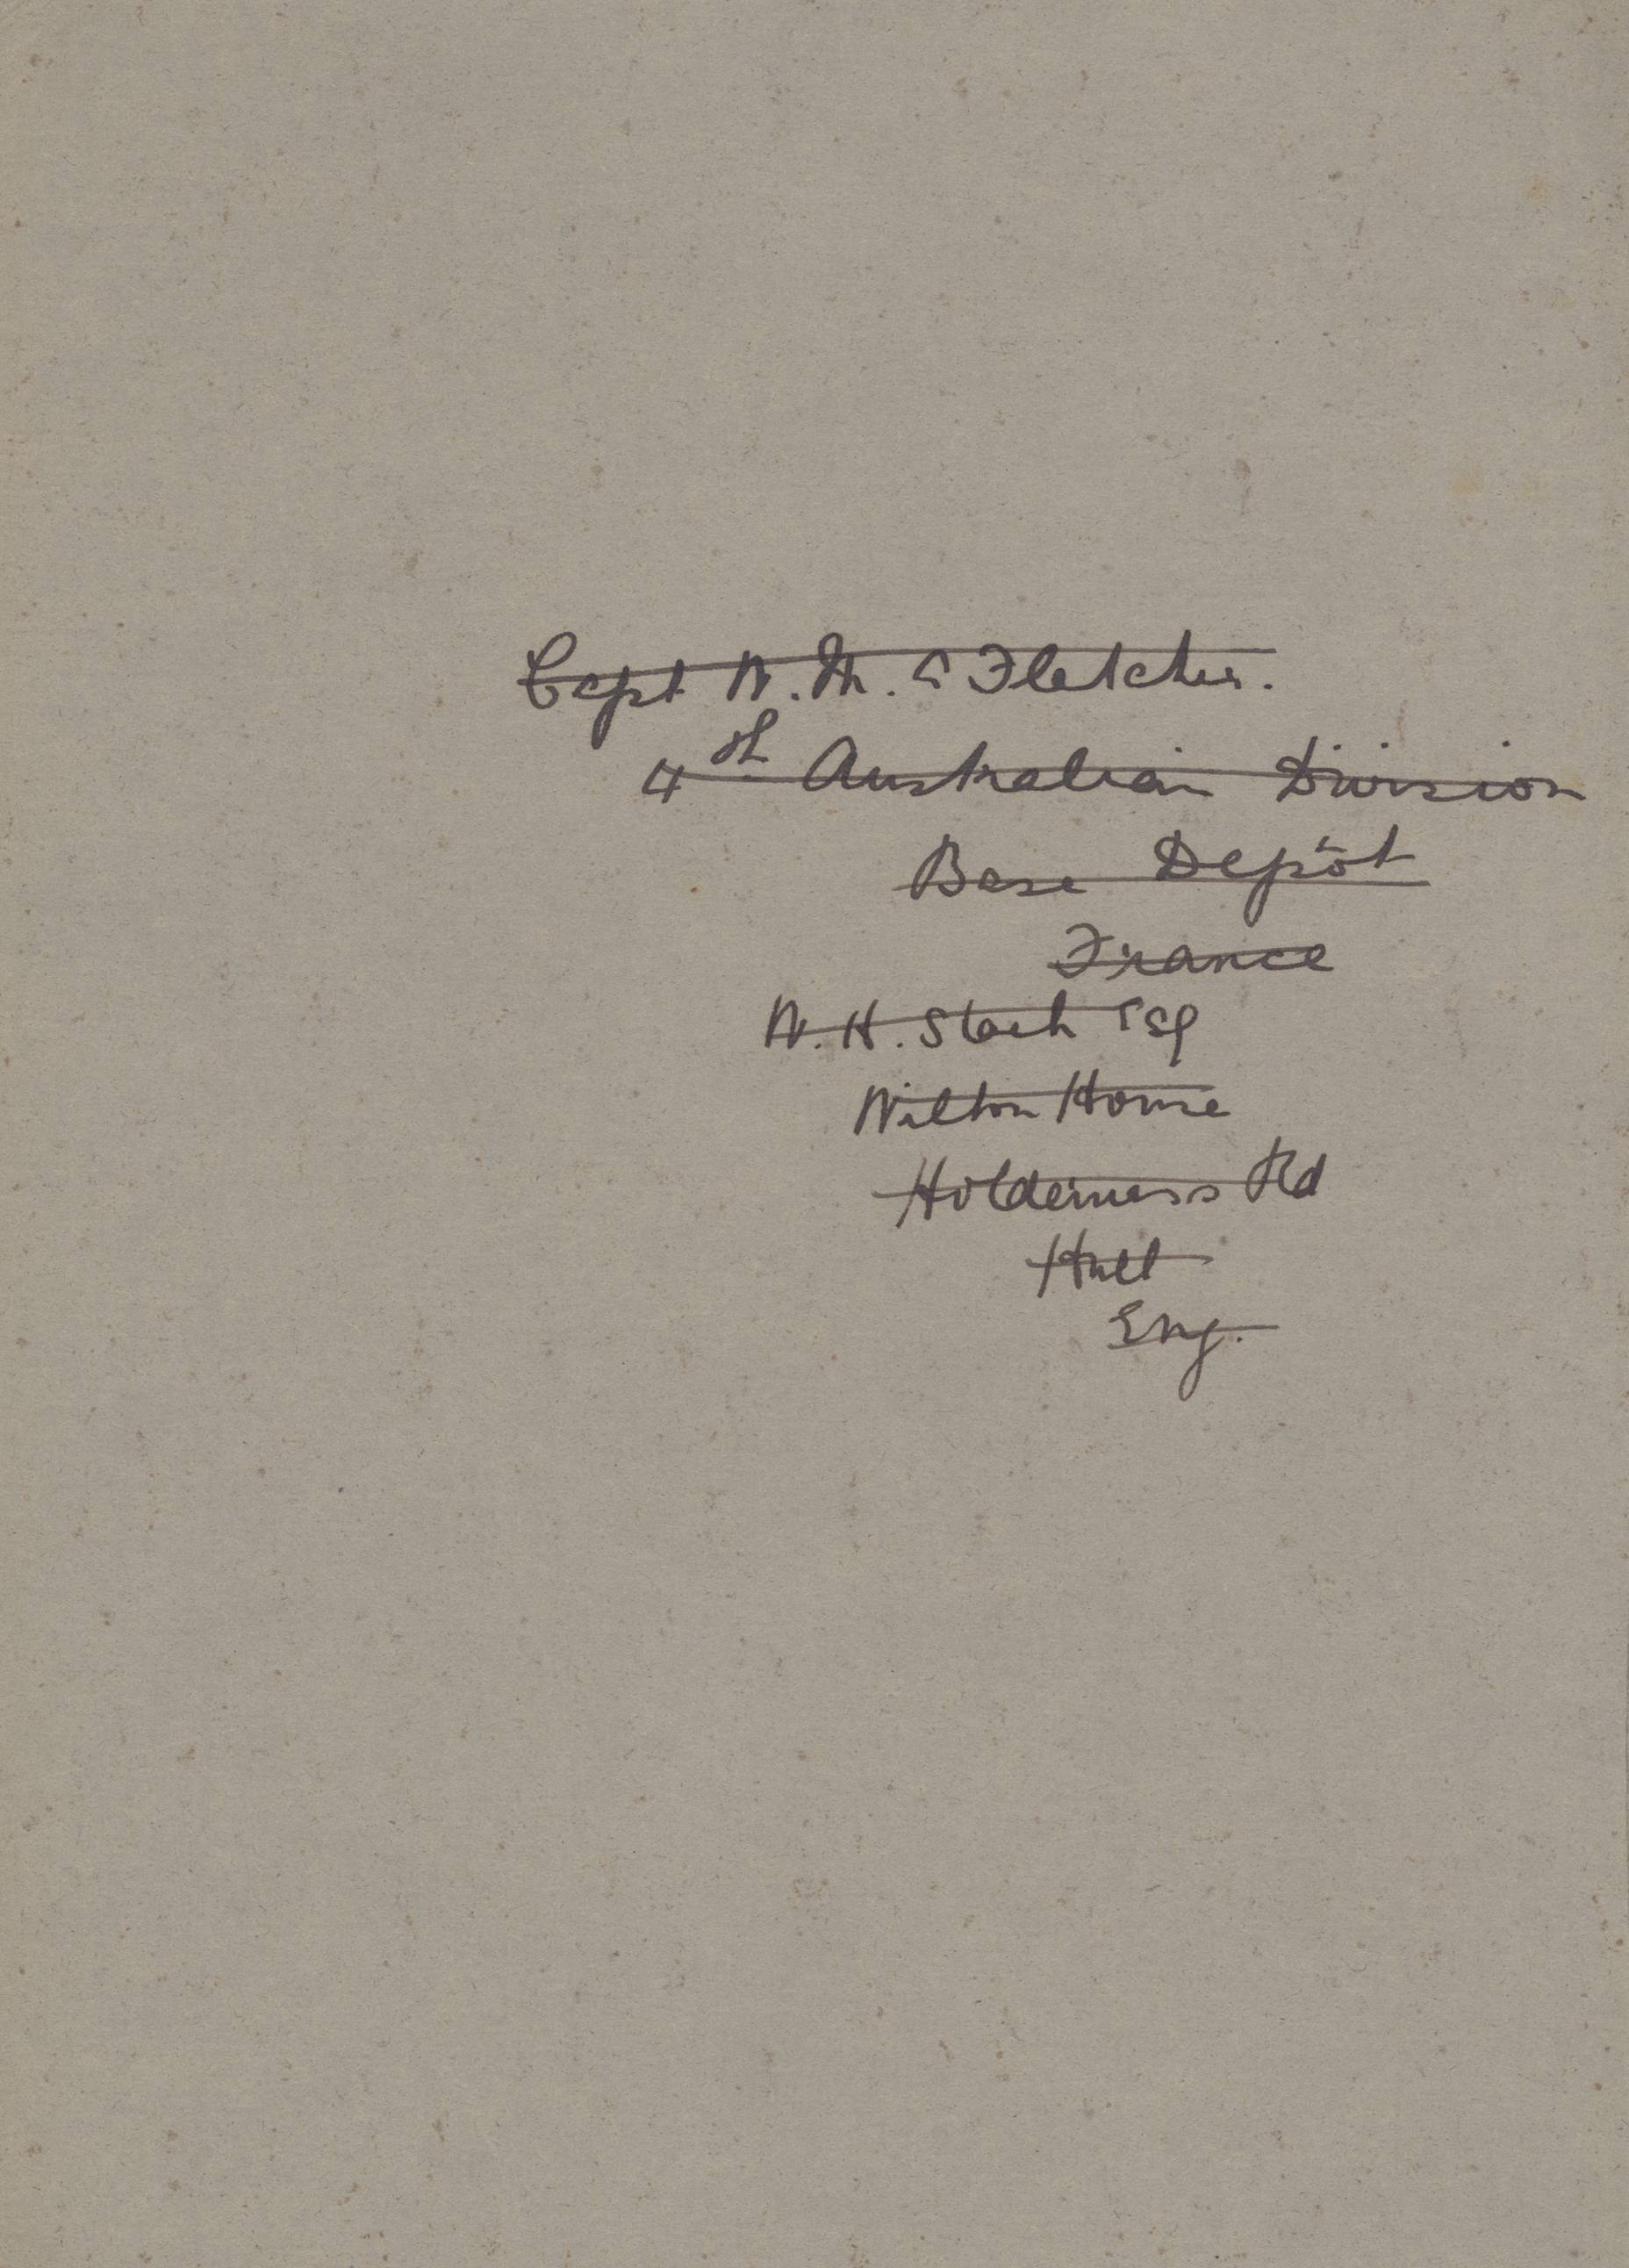 Capt W. M. E Fletcher.
4th Australian Division
Base Depôt
France
W. H. Slack Esq
Wilton House
Holderness Rd
Hull
Eng.